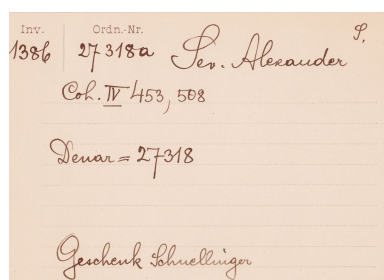 Inv. Ordn.-Nr.
1386 27318a Sev. Alexander P.
Coh. IV 453, 508
Denar = 27318
Geschenk Schnellinger